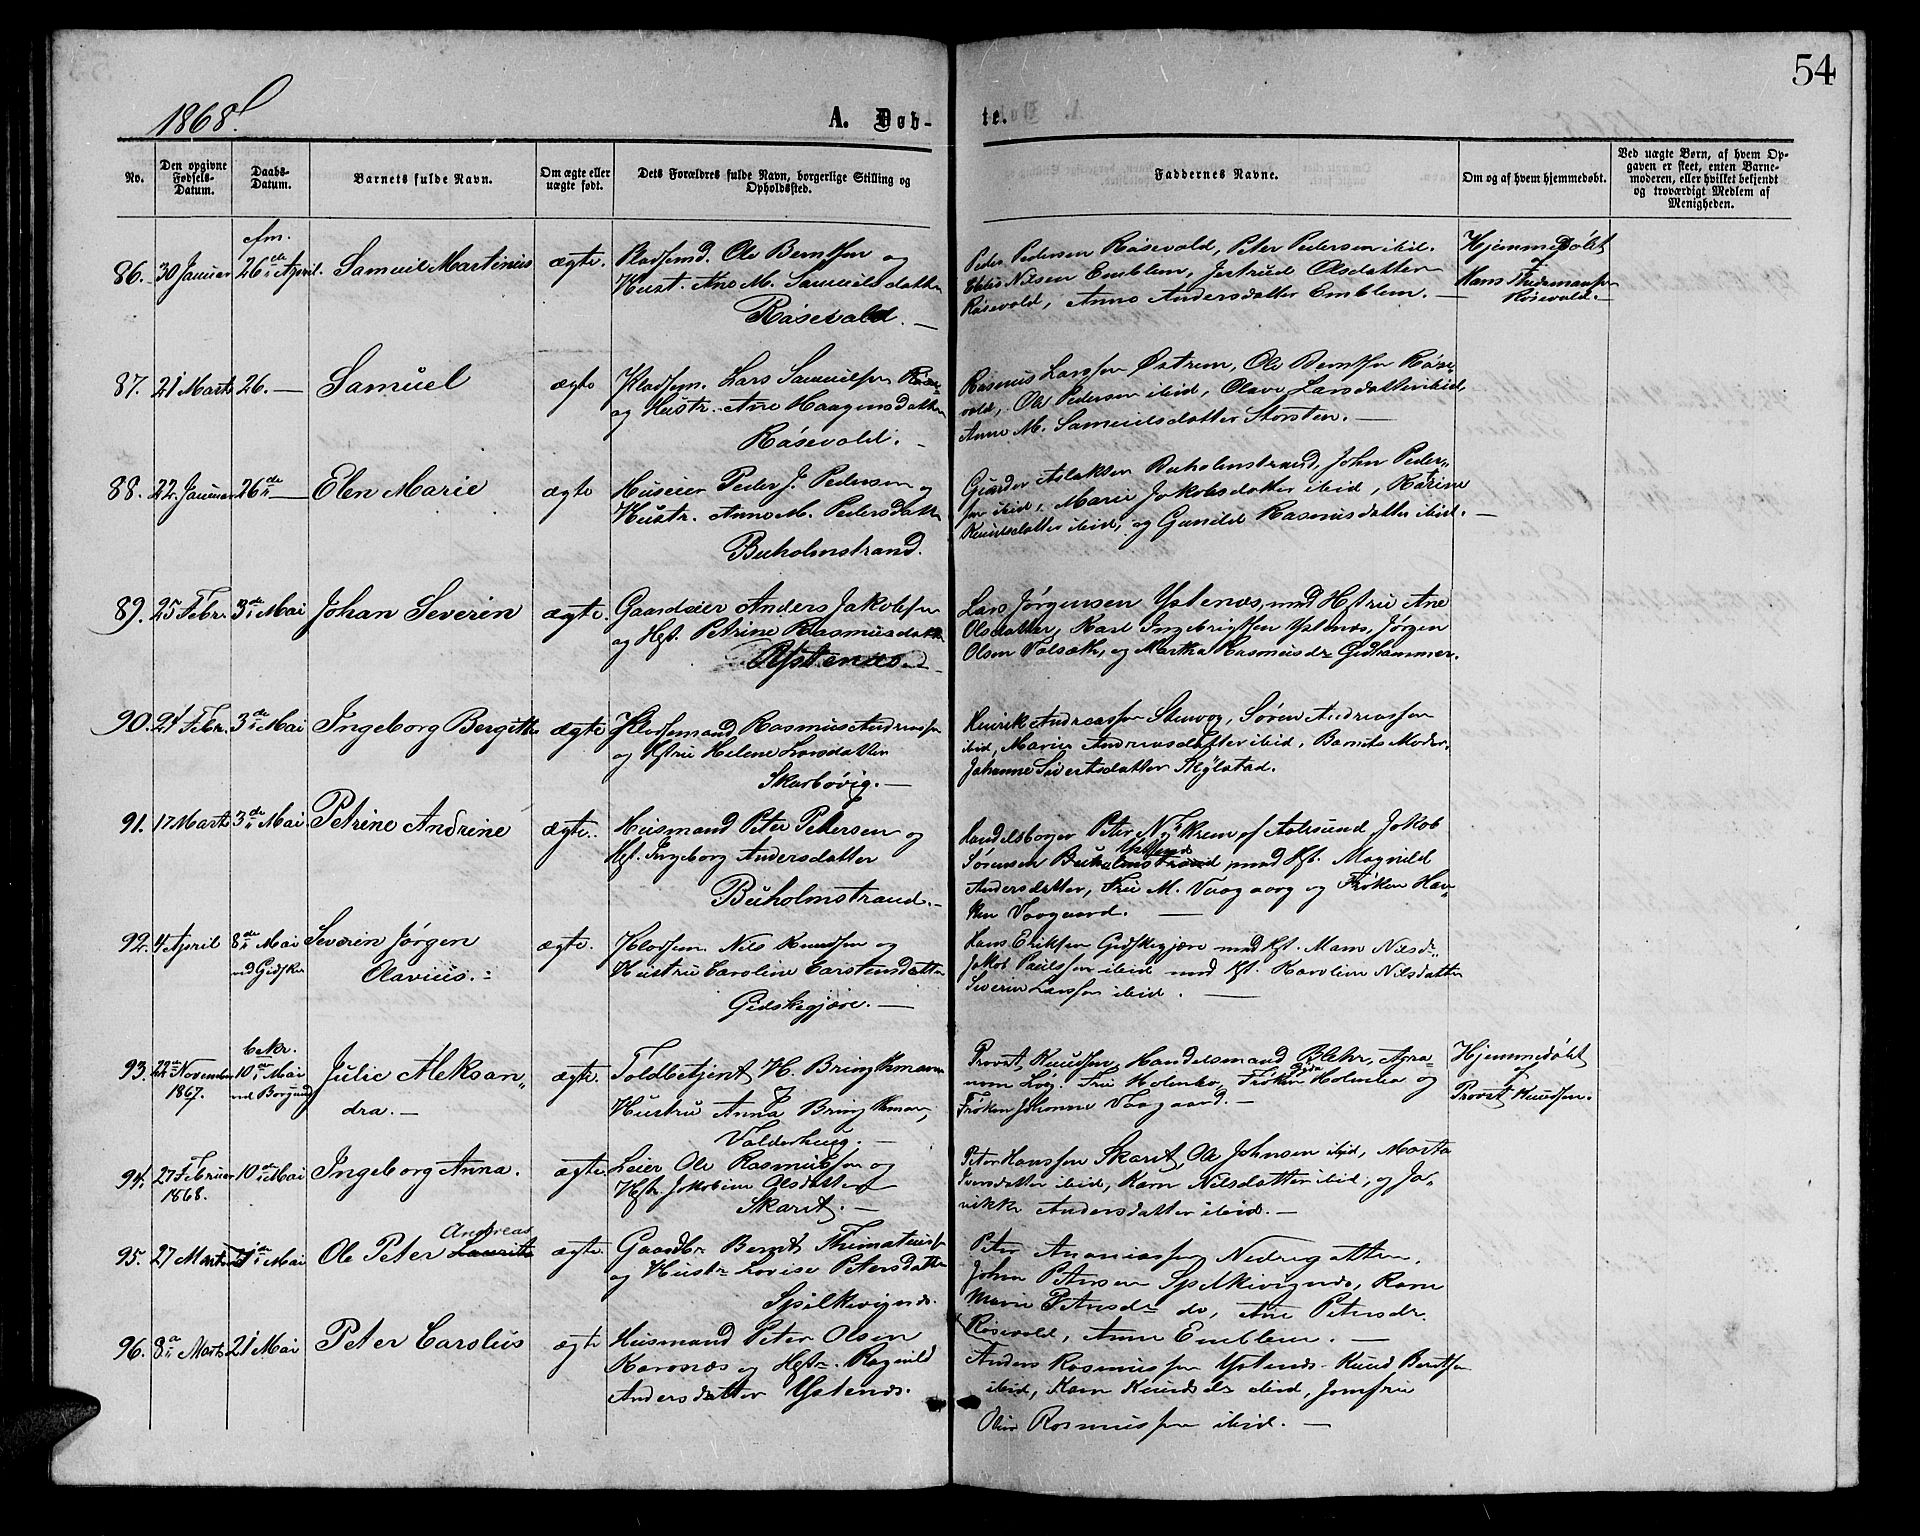 54
1868.
A. Døb-
te.
No.
Den opgivne
Fødsels-
Datum.
Daabs-
Datum.
Barnets fulde Navn.
Om ægte eller
uægte født.
Dets Forældres fulde Navn, borgerlige Stilling og
Opholdssted.
Faddernes Navne.
Om og af hvem hjemmedøbt.
Ved uægte Børn, af hvem Op-
gaven er skeet, enten Barne-
moderen, eller hvilket bekjendt
og troværdigt Medlem af
Menigheden.
86. 30 Januar
cfm.
26de April.
Samuil Martinus
ægte.
Pladsemd. Ole Berntsen og
Hust. Ane M. Samuilsdatter
Råsevold. —
Peder Pedersen Råsevold, Peter Pedersen ibid.
Nilsen Emblem, Jertrud Olsdatter
Råsevold, Anne Andersdatter Emblem. —
Hjemmedøbt
Hans
Råsevold. —
87. 21 Marts 26. —
Samuel
ægte
Pladsem. Lars Samuilsen
og Hustr. Ane Haagensdatter
Råsevold. —
Rasmus Larssen Østrem, Ole Berntsen Råse-
vold, Ole Pedersen ibid, Olave Larsdatter ibid,
Anne M. Samuilsdatter Storsten. —
88. 22. Januar 26de —
Elen Marie
ægte
Huseier Peder J. Pedersen og
Hustr. Anne M. Pedersdatter
Buholmstrand.
Gunder Aslaksen Buholmstrand, John Peder-
sen ibid, Marie Jakobsdatter ibid, Karine
Knudsdatter ibid, og Gunild Rasmusdatter ibid. —
89. 25 Febr. 3de Mai
Johan Severin
ægte.
Gaardeier Anders Jakobsen
og Hst. Petrine Rasmusdatter
Ystenæs
Lars Jørgensen Ystenæs, med Hstru Ane
Olsdatter, Karl Ingebrigtsen Ystenæs, Jørgen
Olsen Valsæth, og Martha Rasmusdr Gidhammer.
90. 21 Febr. 3de Mai
Ingeborg Bergitte
ægte
Pladsemand Rasmus Andreassen
og Hstru Helene Larsdatter
Skarbøvig. —
Henrik Andreassen Stenvog, Søren Andreassen
ibid, Marie Andreasdatter ibid, Barnets Moder,
Johanne Sivertsdatter Skylstad.
91. 17 Marts 3de Mai
Petrine Andrine
ægte.
Husmand Peter Petersen og
Hst. Ingeborg Andersdatter
Buholmstrand. —
Handelsborger Peter N. Krem af Aalesund, Jakob
Sørensen Buholmstrand med Hst. Magnild
Andersdatter, Fru M. Vaagaarg og Frøken Hav-
ken Vaagaard. —
92. 4 April 8de Mai
ved Gidske
Severin Jørgen
Olavius. =
ægte.
Pladsem. Nils Knudsen og
Hustru Caroline Carstensdatter
Gidskegjøre. —
Hans Eriksen Gidskegjøre med Hst. Maren Nilsd=
Jakob Paulssen ibid med Hst. Karoline Nilsdatter
Severin Larssen ibid. —
93. 22de November
1867.
bekr.
10de Mai
ved Borgund
Julie Aleksan-
dra. —
ægte.
Toldbetjent H. Bringkmann
Hustru Anna Bringkman,
Valderhaug. —
Provst Knudsen, Handelsmand Blehr, Agro-
nom Løg. Fru Holmbo, Frøken Holmboe og
Frøken Johanne Vaagaard. —
Hjemmedøbt
af
Provst Knudsen.
94. 27 Februar
1868.
10de Mai
Ingeborg Anna.
ægte.
Leier Ole Rasmussen og
Hstr. Jakobine Olsdatter
Skaret. —
Peter Hanssen Skaret, Ole Johnsen ibid, Marta
Iversdatter ibid, Karn Nilsdatter ibid, og Jo-
vikke Andersdatter ibid. —
95. 27 Marts Mai
Andreas
Ole Peter Laurits
ægte.
Gaardbr. Bernt Thimateussen
og Hustr. Lovise Petersdatter
Spilkevignæs.
Peter Ananiassen Nedregotten.
John Petersen Spilkevignæs, Karn
Marie Petersdr do, Ane Petersdr.
Råsevold, Anne Emblem. —
96. 8de Marts 21 Mai
Peter Carolus
ægte
Husmand Peter Olsen
Korsnæs og Hstr. Ragnild
Andersdatter Ystenæs.
Anders Rasmussen Ystenæs. Knud Berntsen
ibid, Karn Knudsdr ibid, Jomfru
Rasmussen ibid. —